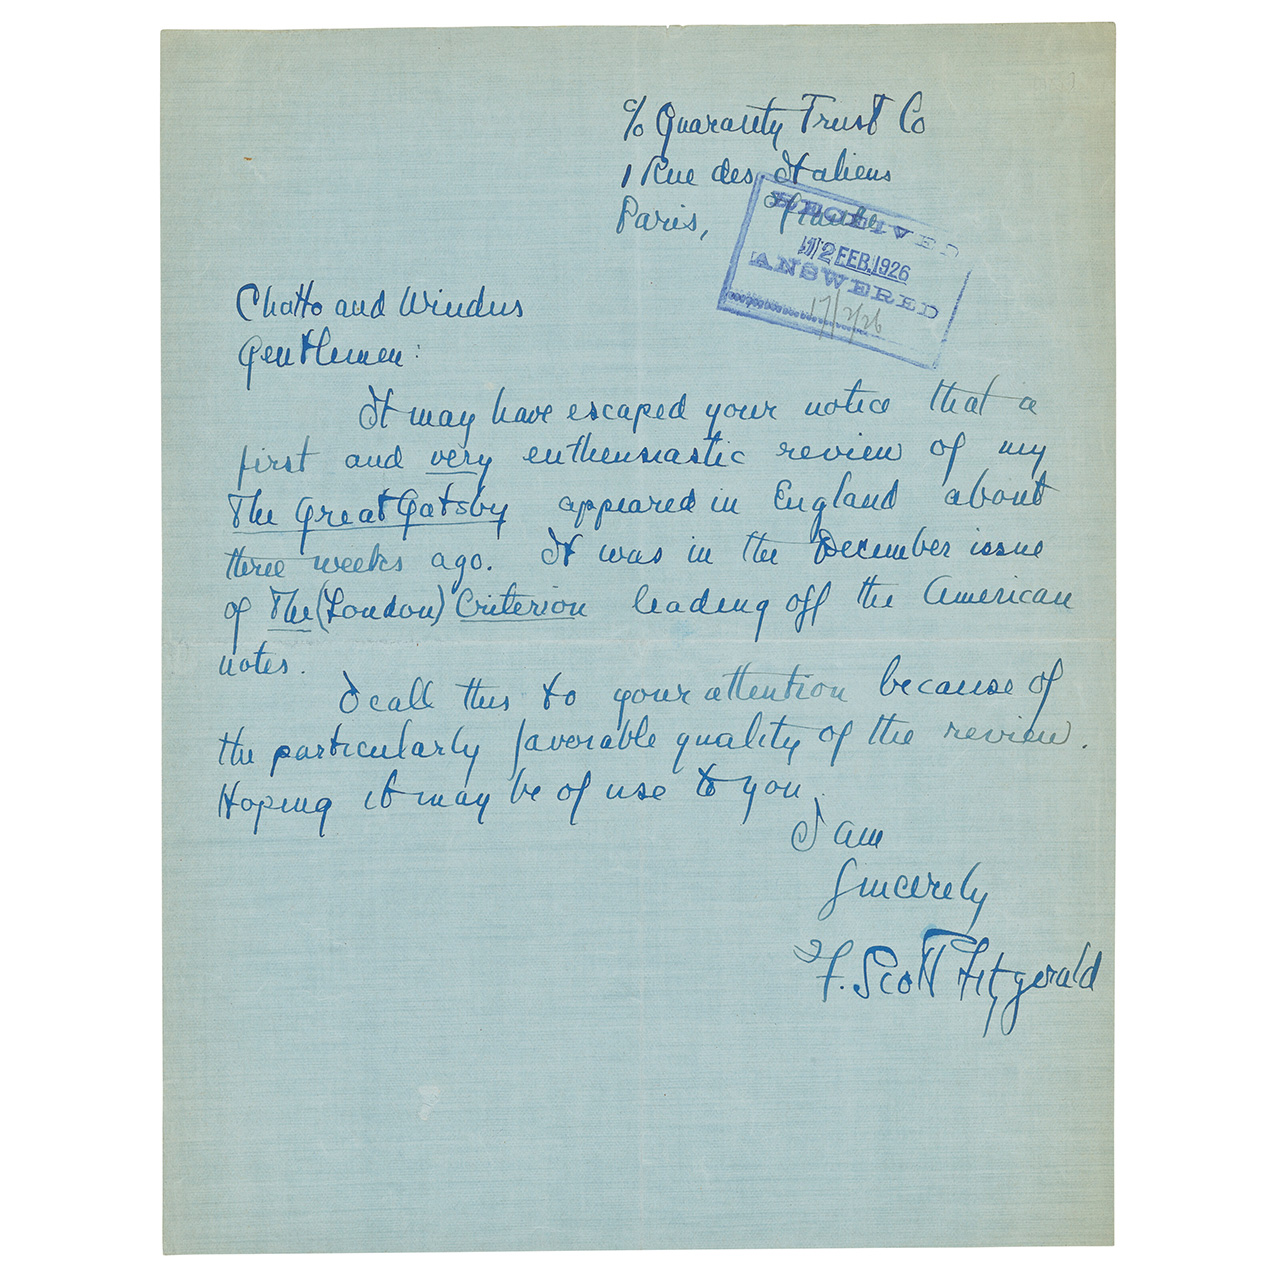 c/o Guaranty Trust Co
1 Rue des Italiens
Paris, France
RECEIVED
12 FEB. 1926
ANSWERED
17/2/26
Chatto and Windus
Gentlemen:
It may have escaped your notice that a
first and very enthenuiastic review of my
The Great Gatsby appeared in England about
three weeks ago. It was in the December issue
of The (London) Criterion leading off the American
notes.
I call this to your attention because of
the particularly favorable quality of the review.
Hoping it may be of use to you.
I am
Sincerely
F. Scott Fitzgerald